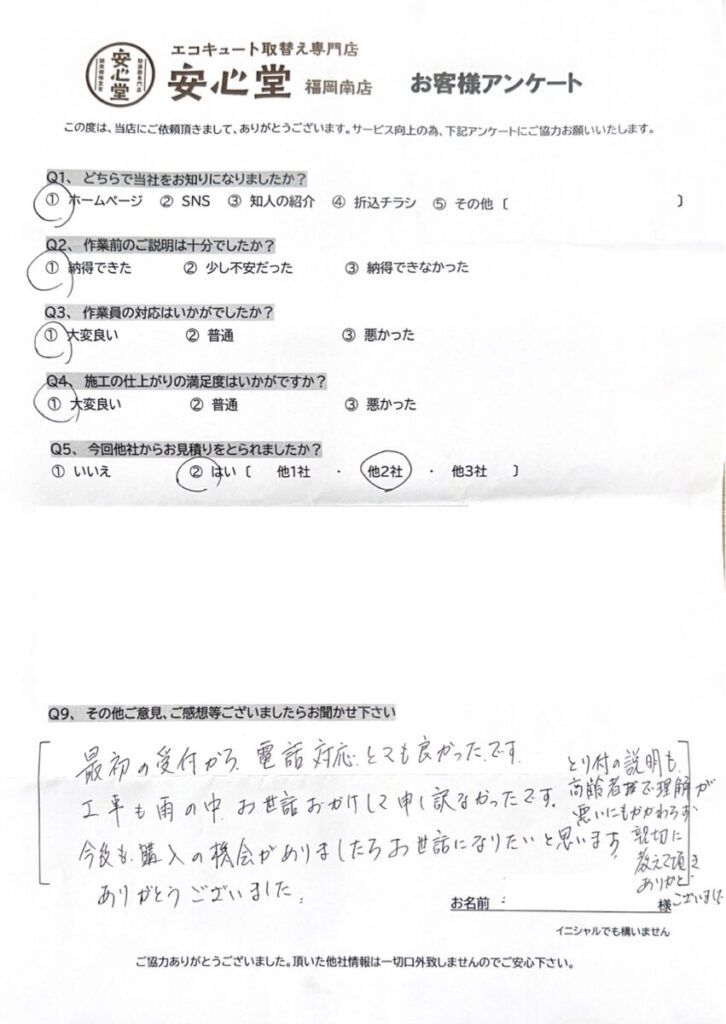 エコキュート取替え専門店
安心堂 福岡南店 お客様アンケート
安心堂
この度は、当店にご依頼頂きまして、ありがとうございます。サービス向上の為、下記アンケートにご協力お願いいたします。
Q1、 どちらで当社をお知りになりましたか？
① ホームページ ② SNS ③ 知人の紹介 ④ 折込チラシ ⑤ その他〔 〕
Q2、 作業前のご説明は十分でしたか？
① 納得できた ② 少し不安だった ③ 納得できなかった
Q3、 作業員の対応はいかがでしたか？
① 大変良い ② 普通 ③ 悪かった
Q4、 施工の仕上がりの満足度はいかがですか？
① 大変良い ② 普通 ③ 悪かった
Q5、 今回他社からお見積りをとられましたか？
① いいえ ② はい〔 他1社 ・ 他2社 ・ 他3社 〕
Q9、 その他ご意見、ご感想等ございましたらお聞かせ下さい
最初の受付から、電話対応、とても良かったです。
工事も雨の中、お世話おかけして申し訳なかったです。
今後も、購入の機会がありましたらお世話になりたいと思います。
ありがとうございました。
とり付の説明も、
高齢者で理解が
悪いにもかかわらず
親切に
教えて頂き
ありがと
ございました
お名前： 様
イニシャルでも構いません
ご協力ありがとうございました。頂いた他社情報は一切口外致しませんのでご安心下さい。